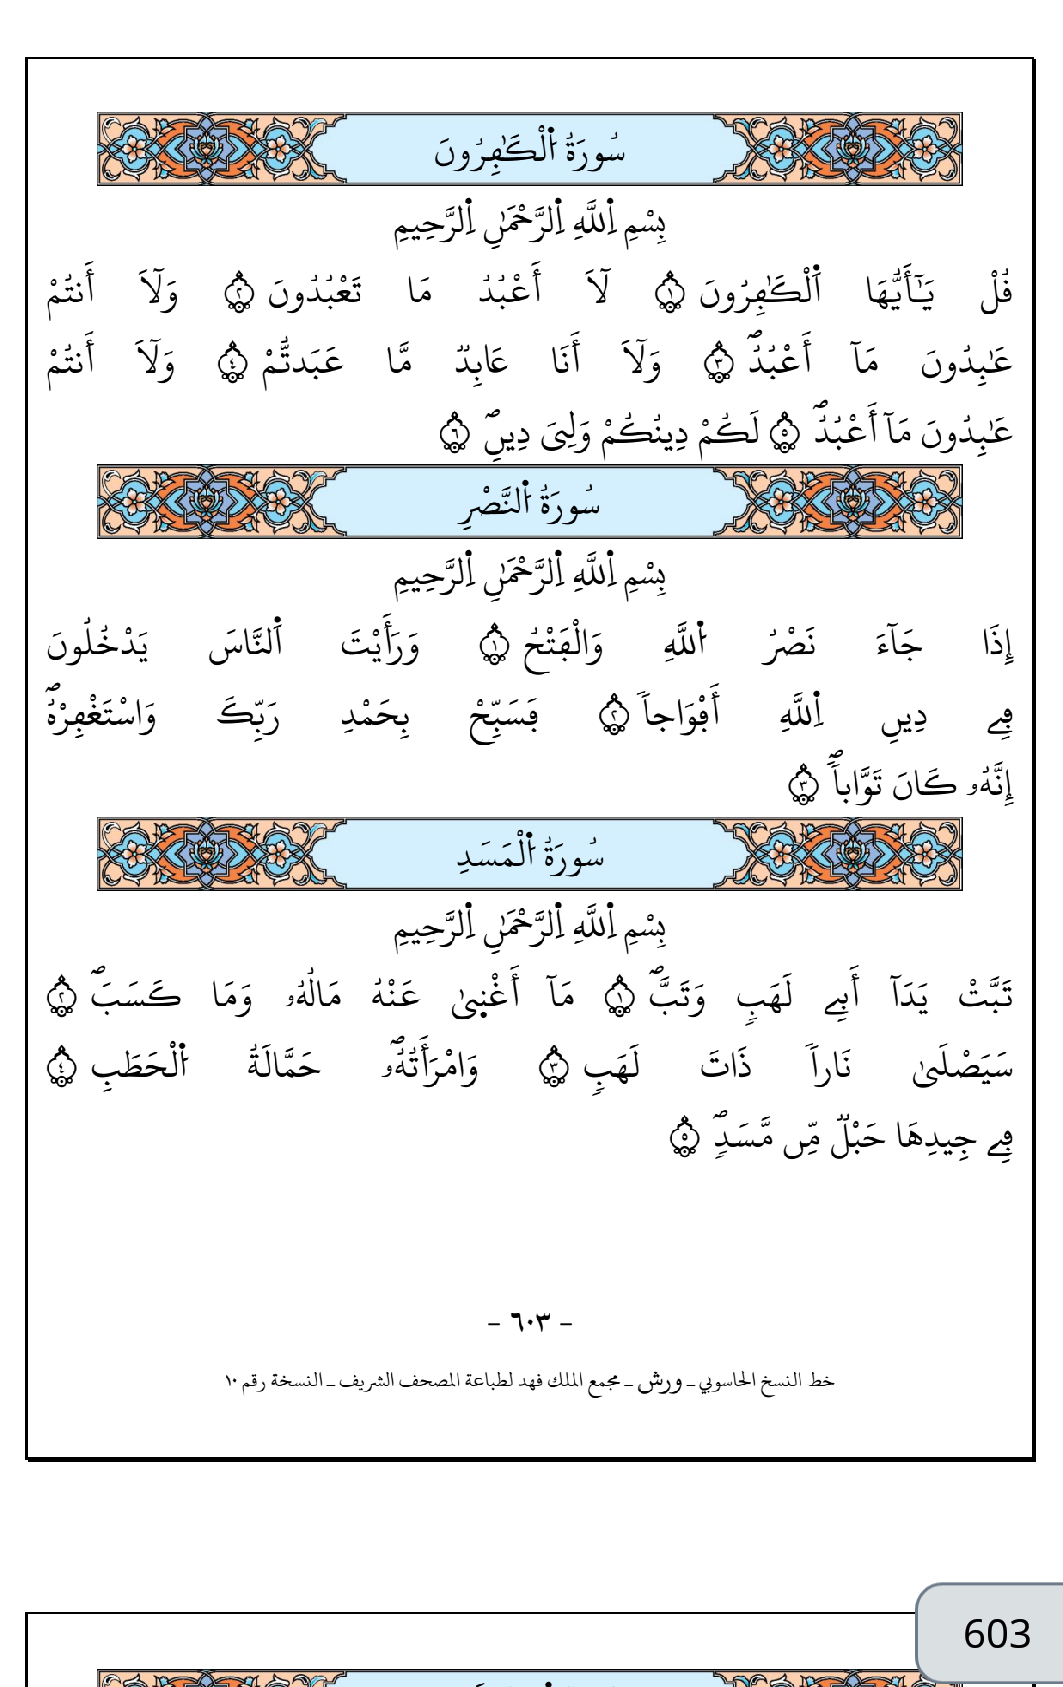 سُورَةُ اُ۬لْكَٰفِرُونَ
بِسْمِ اِ۬للَّهِ اِ۬لرَّحْمَٰنِ اِ۬لرَّحِيمِ
قُلْ يَٰٓأَيُّهَا اَ۬لْكَٰفِرُونَ ١ لَآ أَعْبُدُ مَا تَعْبُدُونَ ٢ وَلَآ أَنتُمْ
عَٰبِدُونَ مَآ أَعْبُدُۖ ٣ وَلَآ أَنَا عَابِدٞ مَّا عَبَدتُّمْ ٤ وَلَآ أَنتُمْ
عَٰبِدُونَ مَآ أَعْبُدُۖ ٥ لَكُمْ دِينُكُمْ وَلِيَ دِينِۖ ٦
سُورَةُ اُ۬لنَّصْرِ
بِسْمِ اِ۬للَّهِ اِ۬لرَّحْمَٰنِ اِ۬لرَّحِيمِ
إِذَا جَآءَ نَصْرُ اُ۬للَّهِ وَالْفَتْحُ ١ وَرَأَيْتَ اَ۬لنَّاسَ يَدْخُلُونَ
فِے دِينِ اِ۬للَّهِ أَفْوَاجاٗ ٢ فَسَبِّحْ بِحَمْدِ رَبِّكَ وَاسْتَغْفِرْهُۖ
إِنَّهُۥ كَانَ تَوَّاباٗۖ ٣
سُورَةُ اُ۬لْمَسَدِ
بِسْمِ اِ۬للَّهِ اِ۬لرَّحْمَٰنِ اِ۬لرَّحِيمِ
تَبَّتْ يَدَآ أَبِے لَهَبٖ وَتَبَّۖ ١ مَآ أَغْنۭيٰ عَنْهُ مَالُهُۥ وَمَا كَسَبَۖ ٢
سَيَصْلَىٰ نَاراٗ ذَاتَ لَهَبٖ ٣ وَامْرَأَتُهُۥۖ حَمَّالَةُ اُ۬لْحَطَبِ ٤
فِے جِيدِهَا حَبْلٞ مِّن مَّسَدٖۖ ٥
- ٦٠٣ -
خط النسخ الحاسوبي - ورش - مجمع الملك فهد لطباعة المصحف الشريف - النسخة رقم ١٠
603